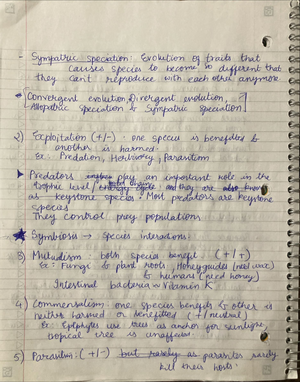 - Sympatric Speciation: Evolution of traits that
causes species to become so different that
they can't reproduce with each other anymore
* Convergent evolution, Divergent evolution, ?
Allopatric Speciation & Sympatric Speciation
2) Exploitation (+/-) : one species is benefitted &
another is harmed.
Ex: Predation, Herbivory, Parasitism
Predators play an important role in the
trophic level / they are also known
as keystone species. Most predators are keystone
species
They control prey populations
★ Symbiosis → species interactions.
3) Mutualism : both species benefit (+/+)
Ex: Fungi & plant roots, Honeyguides (need wax)
& humans (need honey)
Intestinal bacteria → Vitamin K
4) Commensalism: one species benefits & other is
neither harmed or benefitted (+/neutral)
Ex: Epiphytes use trees as anchor for sunlight,
tropical tree is unaffected.
5) Parasitism: (+/-) but rarely as parasites rarely
kill their hosts.